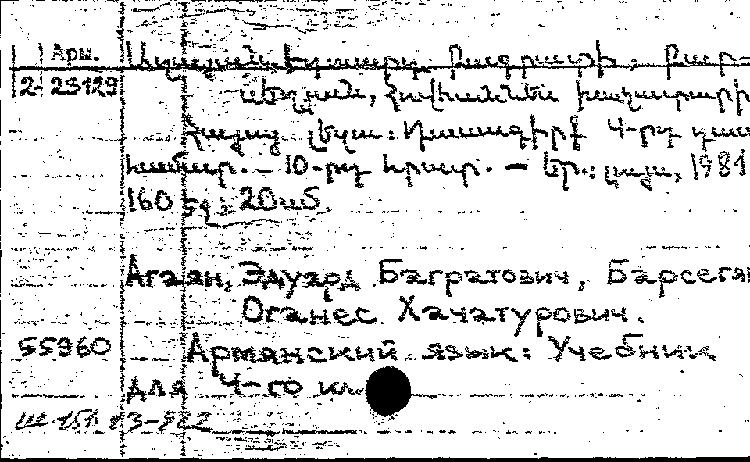 Арм.
2-23129
Աղայան, Էդուարդ Բագրատի, Բար-
սեղյան, Հովհաննես Խաչատուրի
Հայոց լեզու: Դասագիրք 4-րդ դաս
համար. - 10-րդ հրատ. - Եր.: Լույս, 1981
160 էջ; 20սմ.
Агаян, Эдуард Багратович, Барсегян
Оганес Хачатурович.
55960 Армянский язык: Учебник
для 4-го кл